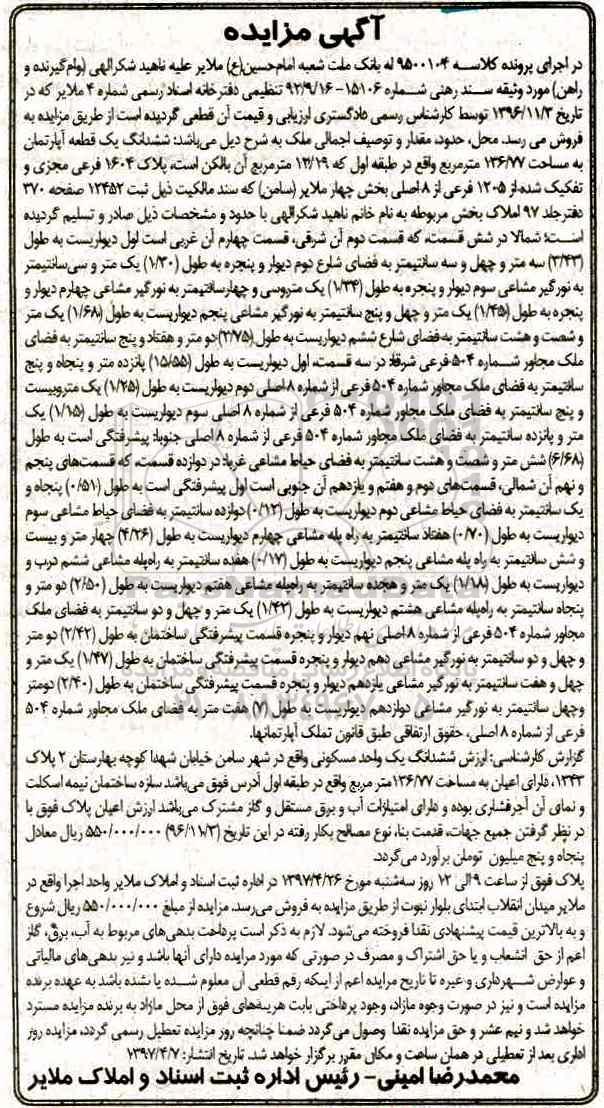 آگهی مزایده
در اجرای پرونده کلاسه ۹۵۰۰۱۰۴ له بانک ملت شعبه امام‌حسین(ع) ملایر علیه ناهید شکرالهی (وام‌گیرنده و
راهن) مورد وثیقه سند رهنی شماره ۱۵۱۰۶-۹۲/۹/۱۶ تنظیمی دفترخانه اسناد رسمی شماره ۴ ملایر که در
تاریخ ۱۳۹۶/۱۱/۳ توسط کارشناس رسمی دادگستری ارزیابی و قیمت آن قطعی گردیده است از طریق مزایده به
فروش می رسد. محل، حدود، مقدار و توصیف اجمالی ملک به شرح ذیل می‌باشد: ششدانگ یک قطعه آپارتمان
به مساحت ۱۳۶/۷۷ مترمربع واقع در طبقه اول که ۱۲/۱۹ مترمربع آن بالکن است، پلاک ۱۶۰۴ فرعی مجزی و
تفکیک شده از ۱۲۰۵ فرعی از ۸ اصلی بخش چهار ملایر (سامن) که سند مالکیت ذیل ثبت ۱۲۴۵۲ صفحه ۳۷۰
دفتر جلد ۹۷ املاک بخش مربوطه به نام خانم ناهید شکرالهی با حدود و مشخصات ذیل صادر و تسلیم گردیده
است: شمالا در شش قسمت، که قسمت دوم آن شرقی، قسمت چهارم آن غربی است اول دیواریست به طول
(۳/۴۳) سه متر و چهل و سه سانتیمتر به فضای شارع دوم دیوار و پنجره به طول (۱/۳۰) یک متر و سی‌سانتیمتر
به نورگیر مشاعی سوم دیوار و پنجره به طول (۱/۳۴) یک متروسی و چهارسانتیمتر به نورگیر مشاعی چهارم دیوار و
پنجره به طول (۱/۴۵) یک متر و چهل و پنج سانتیمتر به نورگیر مشاعی پنجم دیواریست به طول (۱/۶۸) یک متر
و شصت و هشت سانتیمتر به فضای شارع ششم دیواریست به طول (۲/۷۵) دو متر و هفتاد و پنج سانتیمتر به فضای
ملک مجاور شماره ۵۰۴ فرعی شرقا: در سه قسمت، اول دیواریست به طول (۱۵/۵۵) پانزده متر و پنجاه و پنج
سانتیمتر به فضای ملک مجاور شماره ۵۰۴ فرعی از شماره ۸ اصلی دوم دیواریست به طول (۱/۲۵) یک متروبیست
و پنج سانتیمتر به فضای ملک مجاور شماره ۵۰۴ فرعی از شماره ۸ اصلی سوم دیواریست به طول (۱/۱۵) یک
متر و پانزده سانتیمتر به فضای ملک مجاور شماره ۵۰۴ فرعی از شماره ۸ اصلی جنوبا: پیشرفتگی است به طول
(۶/۶۸) شش متر و شصت و هشت سانتیمتر به فضای حیاط مشاعی غربا: در دوازده قسمت، که قسمت‌های پنجم
و نهم آن شمالی، قسمت‌های دوم و هفتم و یازدهم آن جنوبی است اول پیشرفتگی است به طول (۰/۵۱) پنجاه و
یک سانتیمتر به فضای حیاط مشاعی دوم دیواریست به طول (۰/۱۲) دوازده سانتیمتر به فضای حیاط مشاعی سوم
دیواریست به طول (۰/۷۰) هفتاد سانتیمتر به راه پله مشاعی چهارم دیواریست به طول (۴/۲۶) چهار متر و بیست
و شش سانتیمتر به راه پله مشاعی پنجم دیواریست به طول (۰/۱۷) هفده سانتیمتر به راه‌پله مشاعی ششم درب و
دیواریست به طول (۱/۱۸) یک متر و هجده سانتیمتر به راه‌پله مشاعی هفتم دیواریست به طول (۲/۵۰) دو متر و
پنجاه سانتیمتر به راه‌پله مشاعی هشتم دیواریست به طول (۱/۴۲) یک متر و چهل و دو سانتیمتر به فضای ملک
مجاور شماره ۵۰۴ فرعی از شماره ۸ اصلی نهم دیوار و پنجره قسمت پیشرفتگی ساختمان به طول (۲/۴۲) دو متر
و چهل و دو سانتیمتر به نورگیر مشاعی دهم دیوار و پنجره قسمت پیشرفتگی ساختمان به طول (۱/۴۷) یک متر و
چهل و هفت سانتیمتر به نورگیر مشاعی یازدهم دیوار و پنجره قسمت پیشرفتگی ساختمان به طول (۲/۴۰) دومتر
وچهل سانتیمتر به نورگیر مشاعی دوازدهم دیواریست به طول (۷) هفت متر به فضای ملک مجاور شماره ۵۰۴
فرعی از شماره ۸ اصلی، حقوق ارتفاقی طبق قانون تملک آپارتمانها.
گزارش کارشناسی: ارزش ششدانگ یک واحد مسکونی واقع در شهر سامن خیابان شهدا کوچه بهارستان ۲ پلاک
۱۳۴۳، دارای اعیان به مساحت ۱۳۶/۷۷متر مربع واقع در طبقه اول آدرس فوق می‌باشد سازه ساختمان نیمه اسکلت
و نمای آن آجرفشاری بوده و دارای امتیازات آب و برق مستقل و گاز مشترک می‌باشد ارزش اعیان پلاک فوق با
در نظر گرفتن جمیع جهات، قدمت بنا، نوع مصالح بکار رفته در این تاریخ (۹۶/۱۱/۳) ۵۵۰/۰۰۰/۰۰۰ ریال معادل
پنجاه و پنج میلیون تومان برآورد می‌گردد.
پلاک فوق از ساعت ۹ الی ۱۲ روز سه‌شنبه مورخ ۱۳۹۷/۴/۲۶ در اداره ثبت اسناد و املاک ملایر واحد اجرا واقع در
ملایر میدان انقلاب ابتدای بلوار نبوت از طریق مزایده به فروش می‌رسد. مزایده از مبلغ ۵۵۰/۰۰۰/۰۰۰ ریال شروع
و به بالاترین قیمت پیشنهادی نقدا فروخته می‌شود. لازم به ذکر است پرداخت بدهی‌های مربوط به آب، برق، گاز
اعم از حق انشعاب و یا حق اشتراک و مصرف در صورتی که مورد مزایده دارای آنها باشد و نیز بدهی‌های مالیاتی
و عوارض شهرداری و غیره تا تاریخ مزایده اعم از اینکه رقم قطعی آن معلوم شده یا نشده باشد به عهده برنده
مزایده است و نیز در صورت وجود مازاد، وجوه پرداختی بابت هزینه‌های فوق از محل مازاد به برنده مزایده مسترد
خواهد شد و نیم عشر و حق مزایده نقدا وصول می‌گردد ضمنا چنانچه روز مزایده تعطیل رسمی گردد، مزایده روز
اداری بعد از تعطیلی در همان ساعت و مکان مقرر برگزار خواهد شد. تاریخ انتشار: ۱۳۹۷/۴/۷
محمدرضا امینی- رئیس اداره ثبت اسناد و املاک ملایر